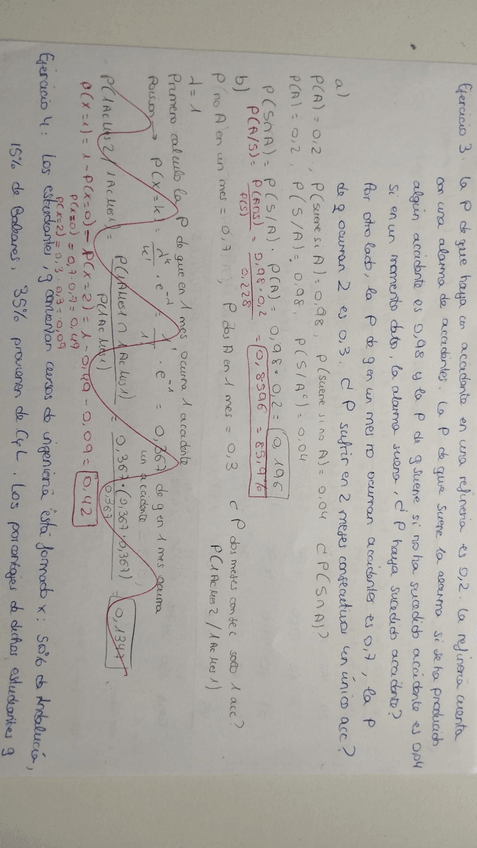 Ejercicio 3. La P de que haya un accidente en una refinería es 0,2. La refinería cuenta
con una alarma de accidentes. La P de que suene la alarma si se ha producido
algún accidente es 0,98 y la P de q suene si no ha sucedido accidente es 0,04
si en un momento dado, la alarma suena, ¿P haya sucedido accidente?
Por otro lado, la P de q en un mes no ocurran accidentes es 0,7, la P
de q ocurran 2 es 0.3. ¿P sufrir en 2 meses consecutivos un único acc?
a)
P(A) = 0,2, P(suene si A) = 0,98, P(suene si no A) = 0,04 ¿P(S∩A)?
P(A) = 0,2, P(S/A) = 0,98. P(S/Aᶜ) = 0,04
P(S∩A) = P(S/A) · P(A) = 0,98 · 0,2 = 0,196
P(A/S) = P(A∩S)/P(S) = 0,98·0,2/0,228 = 0,8596 = 85,96%
b)
P no A en un mes = 0,7, P dos A en 1 mes = 0,3 ¿P dos meses consec solo 1 acc?
λ = 1 P(1Acc Mes 2 / 1Ac Mes 1)
Primero calculo la P de que en 1 mes, ocurra 1 accidente
Poisson → P(X=k) = λᵏ/k! · e⁻ᵏ = 1/1 · e⁻¹ = 0,367 de q en 1 mes ocurra
un accidente
= 0,1347
P(X=1) = 1 - P(X=0) - P(X=2) = 1 - 0,49 - 0,09 = 0,42
P(X=0) = 0,7·0,7 = 0,49
P(X=2) = 0,3·0,3 = 0,09
Ejercicio 4: Los estudiantes, q comienzan cursos de ingeniería está formado x: 50% de Andalucía,
15% de Baleares, 35% provienen de CyL. Los porcentajes de dichos estudiantes q